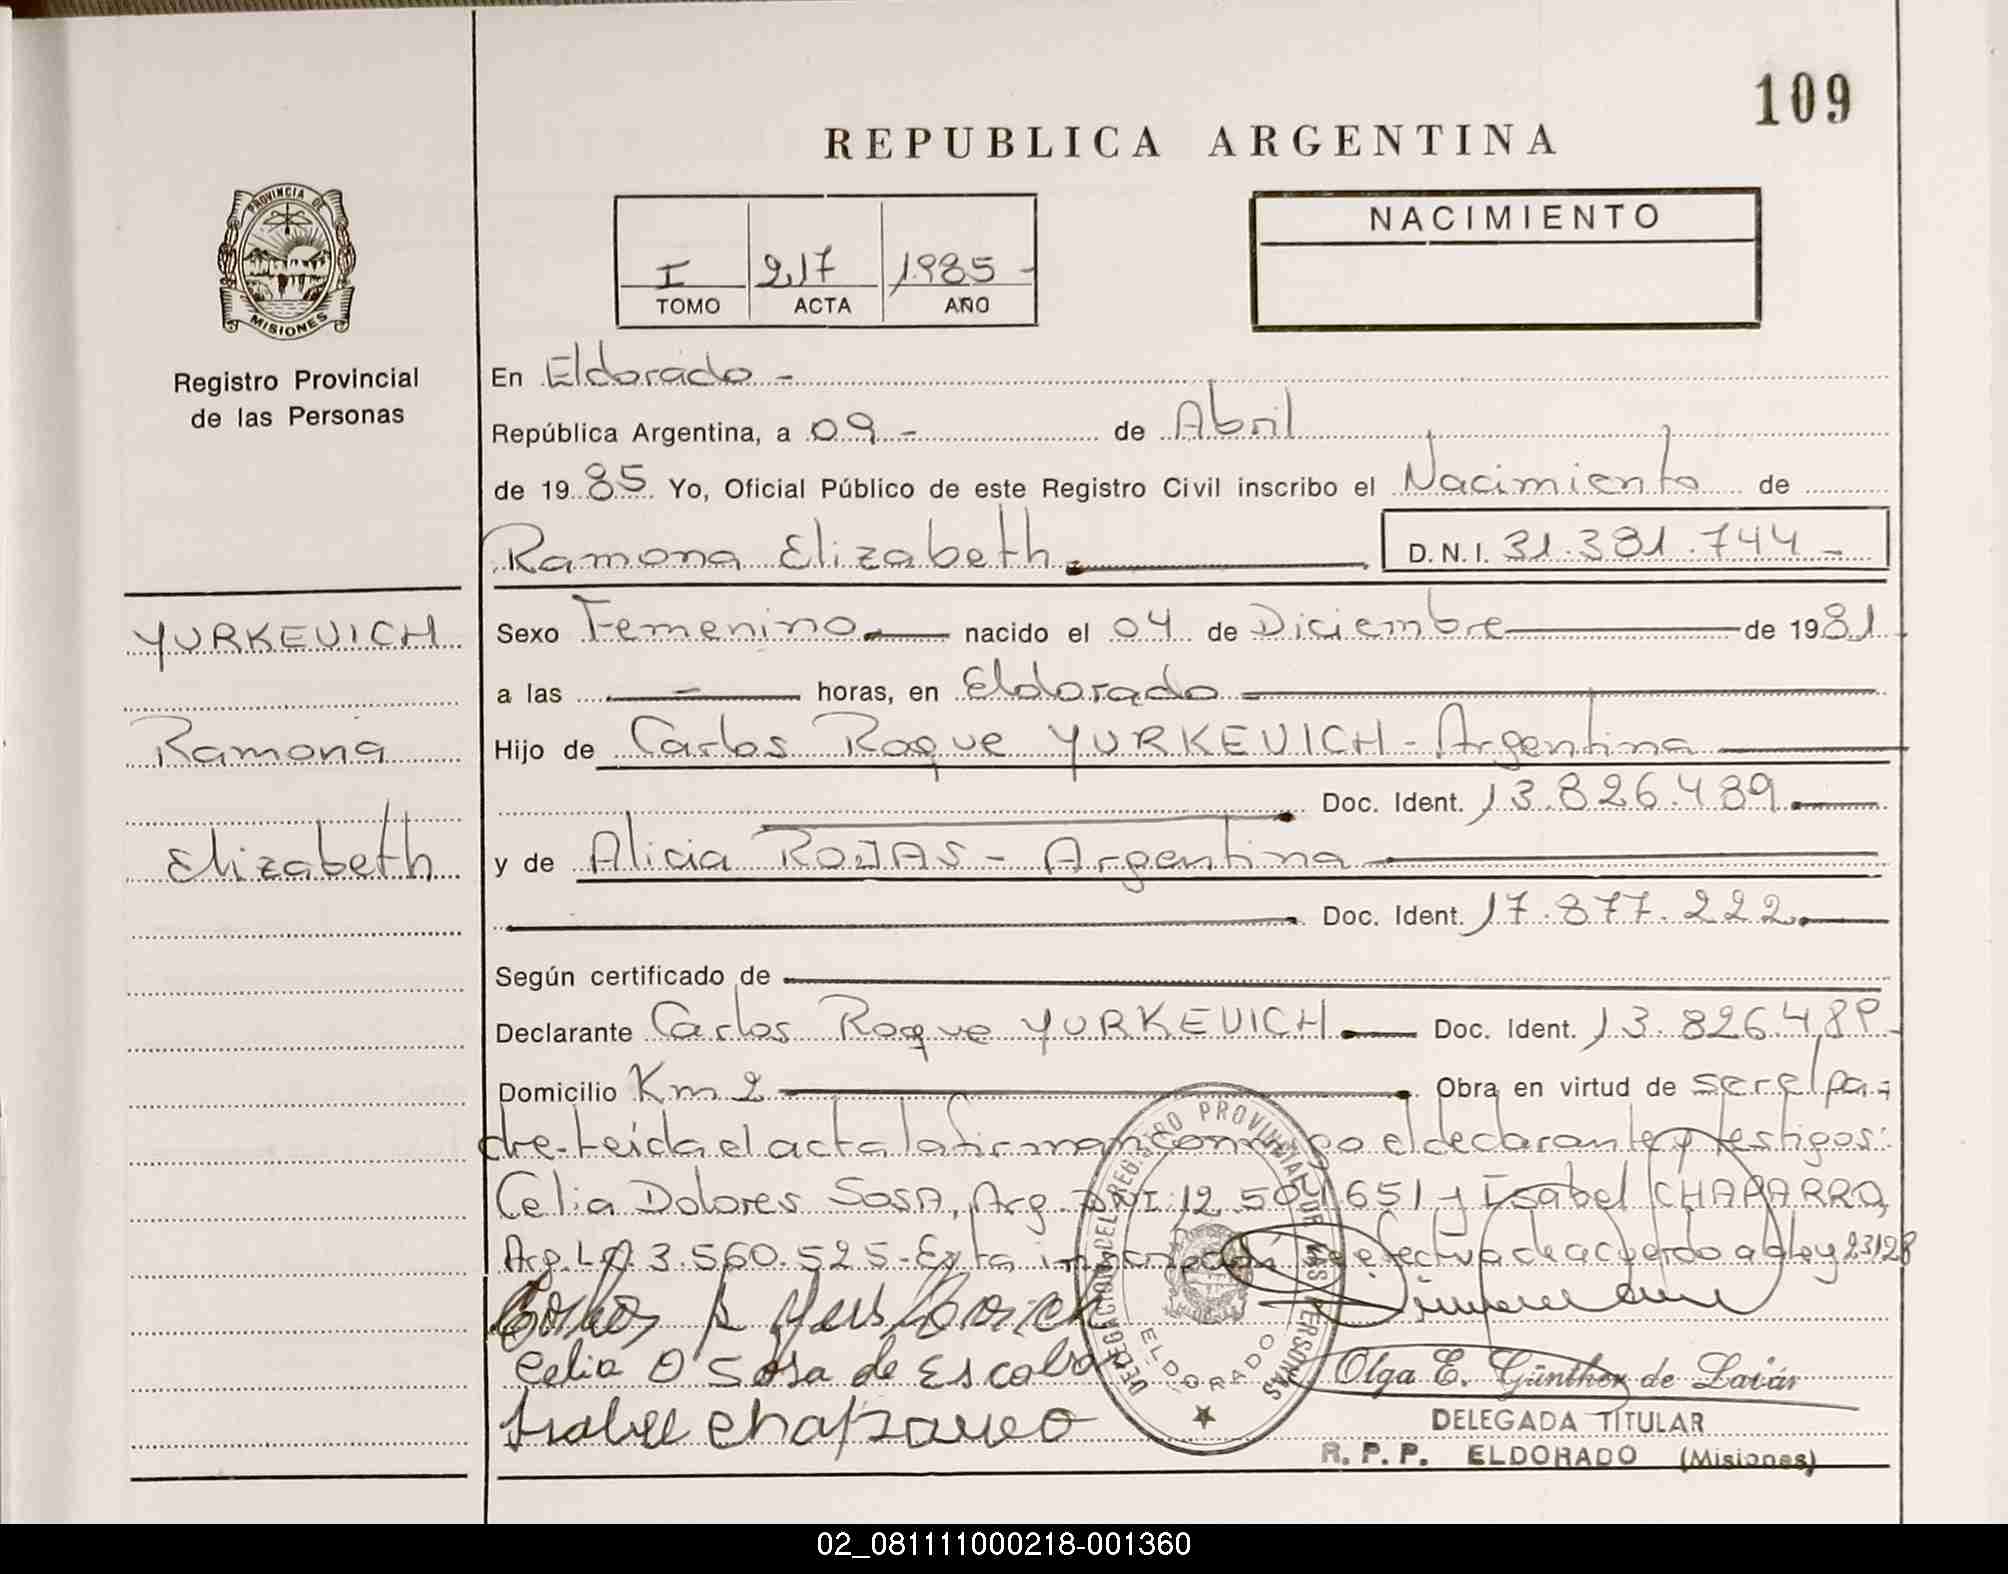 109
REPUBLICA ARGENTINA
PROVINCIA DE
MISIONES
Registro Provincial
de las Personas
I 217 1985-
TOMO ACTA AÑO
NACIMIENTO
En Eldorado-
República Argentina, a 09- de Abril
de 1985 Yo, Oficial Público de este Registro Civil inscribo el Nacimiento de
Ramona Elizabeth D.N.I. 31.381.744-
YURKEVICH
Ramona
Elizabeth
Sexo Femenino nacido el 04 de Diciembre de 1981
a las - horas, en Eldorado
Hijo de Carlos Roque YURKEVICH - Argentina
Doc. Ident. 13.826.489
y de Alicia ROJAS - Argentina
Doc. Ident. 17.877.222
Según certificado de
Declarante Carlos Roque YURKEVICH Doc. Ident. 13.826.489-
Domicilio Km 2 Obra en virtud de ser el pa-
dre-Leída el acta la firman conmigo el declarante y testigos:
Celia Dolores SOSA, Arg. DNI 12.501651 y Isabel CHAPARRO,
Arg. L.C. 3.560.525-Esta inscripción se efectua de acuerdo a la ley 23128
Carlos R Yurkevich
Celia D Sosa de Escobar
Isabel Chaparro
DELEGACION DEL REGISTRO PROVINCIAL DE LAS PERSONAS
ELDORADO
Olga E. Günther de Laiár
DELEGADA TITULAR
R. P. P. ELDORADO (Misiones)
02_081111000218-001360